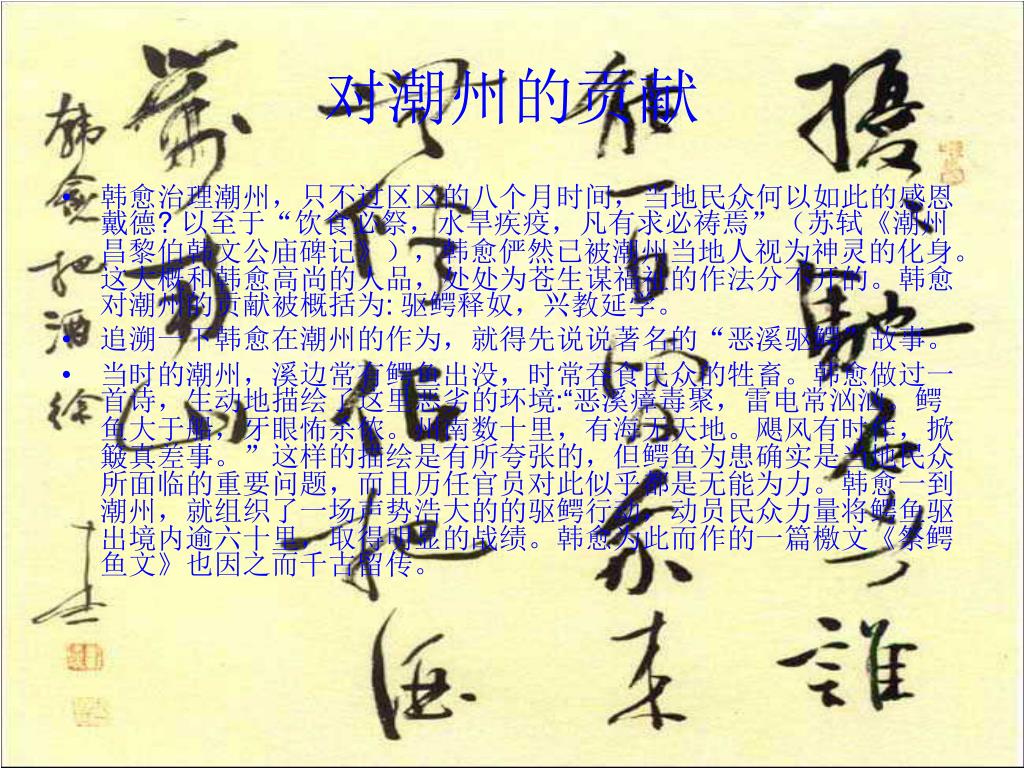 对潮州的贡献
• 韩愈治理潮州，只不过区区的八个月时间，当地民众何以如此的感恩
戴德？以至于“饮食必祭，水旱疾疫，凡有求必祷焉”（苏轼《潮州
昌黎伯韩文公庙碑记》），韩愈俨然已被潮州当地人视为神灵的化身。
这大概和韩愈高尚的人品，处处为苍生谋福祉的作法分不开的。韩愈
对潮州的贡献被概括为:驱鳄释奴，兴教延学。
• 追溯一下韩愈在潮州的作为，就得先说说著名的“恶溪驱鳄”故事。
• 当时的潮州，溪边常有鳄鱼出没，时常吞食民众的牲畜。韩愈做过一
首诗，生动地描绘了这里恶劣的环境:“恶溪瘴毒聚，雷电常汹汹。鳄
鱼大于船，牙眼怖杀侬。州南数十里，有海无天地。飓风有时作，掀
簸真差事。”这样的描绘是有所夸张的，但鳄鱼为患确实是当地民众
所面临的重要问题，而且历任官员对此似乎都是无能为力。韩愈一到
潮州，就组织了一场声势浩大的的驱鳄行动，动员民众力量将鳄鱼驱
出境内逾六十里，取得明显的战绩。韩愈为此而作的一篇檄文《祭鳄
鱼文》也因之而千古留传。
扰扰驰名者谁
能一日闲我来
无伴侣把酒
对南山
韩愈把酒